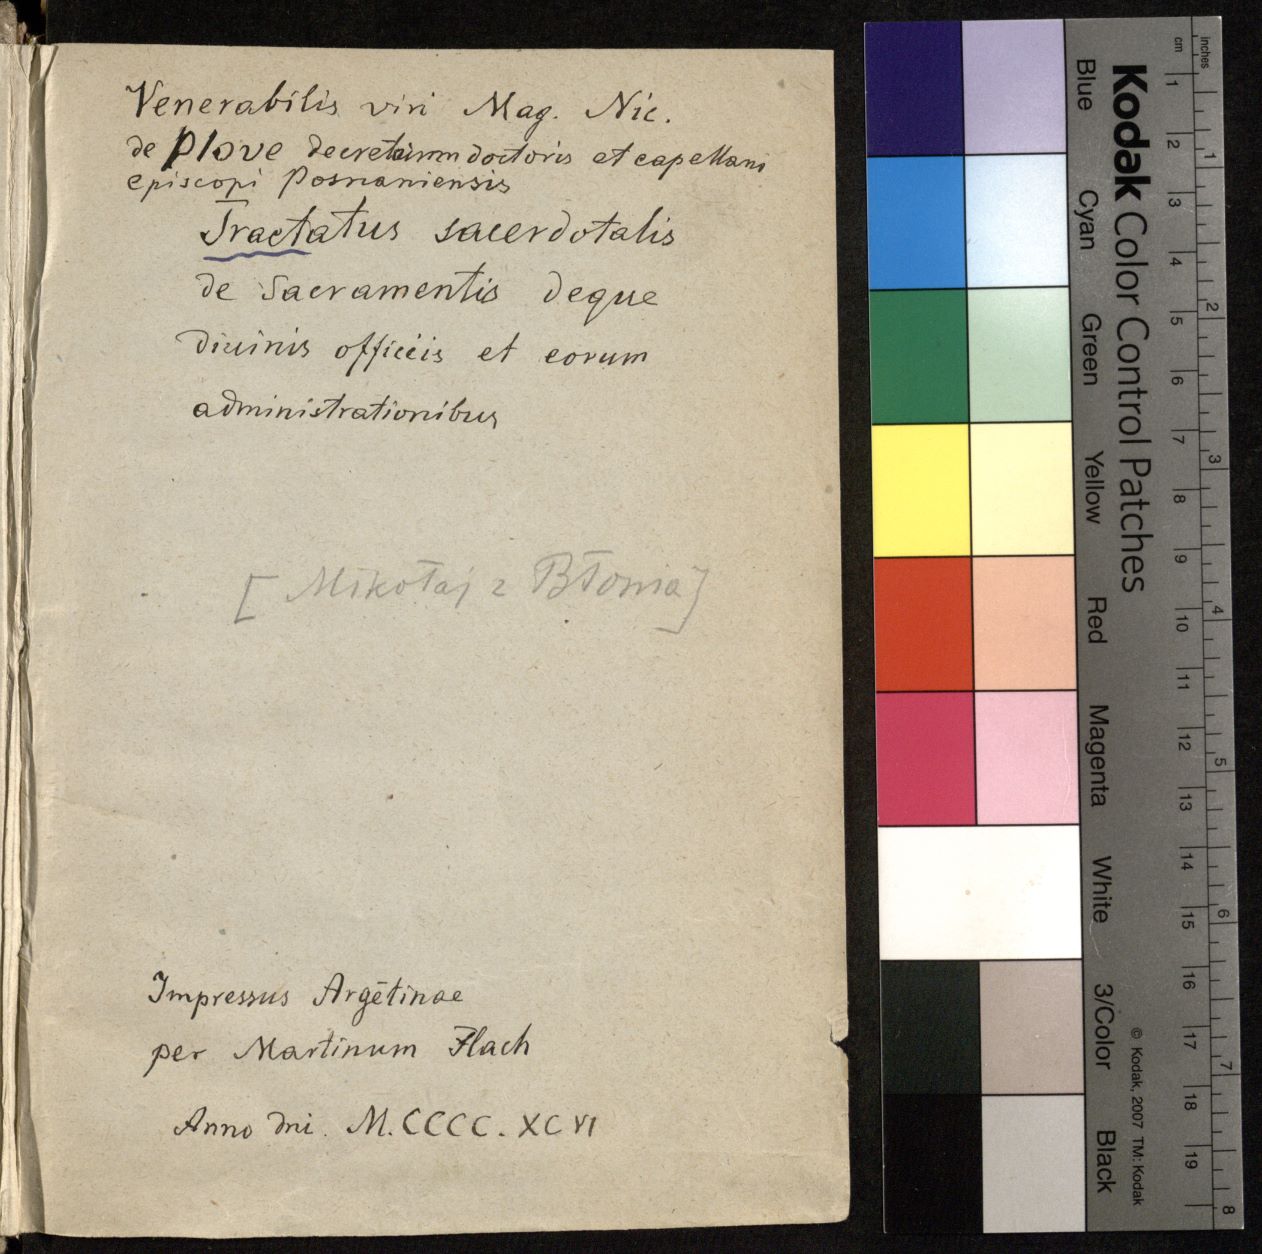 Venerabilis viri Mag. Nic.
de Plove decretorum doctoris et capellani
episcopi Posnaniensis
Tractatus sacerdotalis
de Sacramentis deque
divinis officiis et eorum
administrationibus
[Mikołaj z Błonia]
Impressus Argētinae
per Martinum Flach
Anno dni. M.CCCC.XCVI
Kodak Color Control Patches
Blue Cyan Green Yellow Red Magenta White 3/Color Black
© Kodak, 2007 TM: Kodak
cm 1 2 3 4 5 6 7 8 9 10 11 12 13 14 15 16 17 18 19
inches 1 2 3 4 5 6 7 8